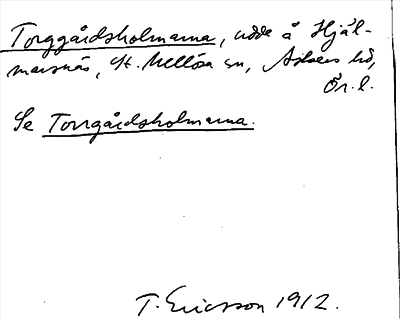 Torggårdsholmarna, udde å Hjäl-
marsnäs, St. Mellösa sn, Askers hd,
Ör. l.
Se Torrgårdsholmarna.
T. Ericsson 1912.